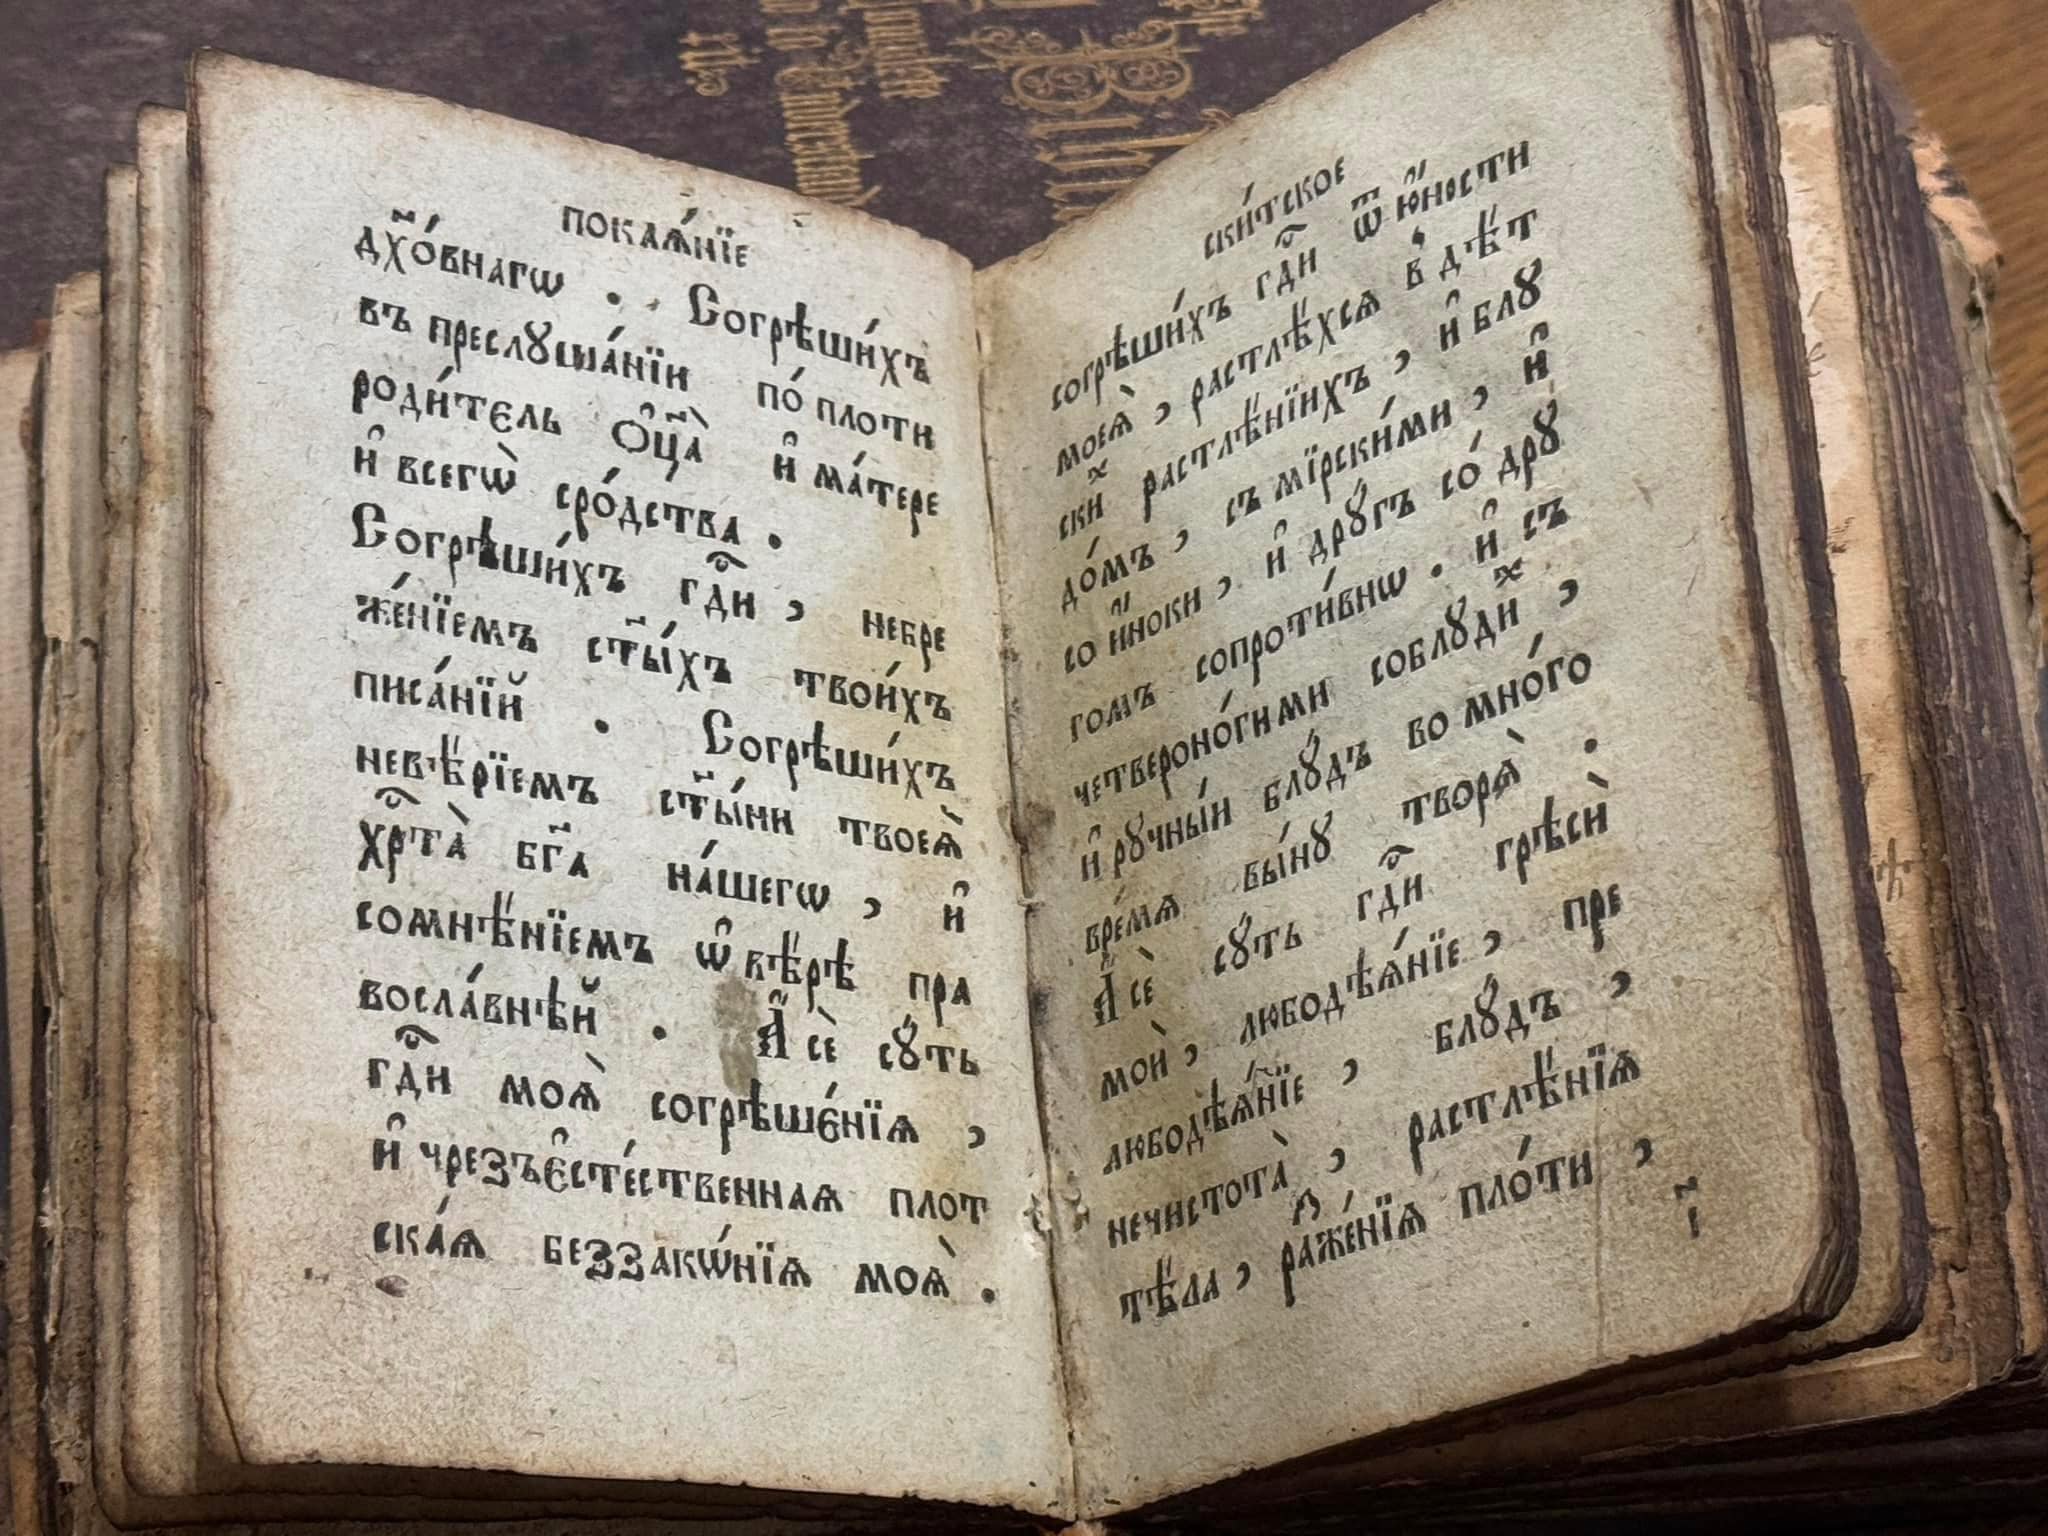 покаѧ́нїе
дх҃о́внагѡ . Согрѣши́хъ
въ преслꙋша́нїи по́ плоти
роди́тєль Ѻ҆ц҃а̀ и҆ ма́тере
и҆ всегѡ̀ сро́дства .
Согрѣши́хъ гд҇и , небре
же́нїемъ ст҃ы́хъ твои́хъ
писа́нїй . Согрѣши́хъ
невѣ́рїемъ ст҃ы́ни твоеѧ̀
хр҇та̀ бг҃а на́шегѡ , и҆
сомнѣ́нїемъ ѡ҆ вѣ́рѣ пра
восла́внѣй . А҆ сѐ сꙋ́ть
гд҇и моѧ̀ согрѣшє́нїѧ ,
и҆ чрезъє҆сте́ственнаѧ плот
ска́ѧ беззакѡ́нїѧ моѧ̀ .
ски́тское
согрѣши́хъ гд҇и ѿ ю҆́ности
моеѧ̀ , растлѣ́хсѧ в дѣ́т
скиⷯ растлѣ́нїихъ , и҆ блꙋ
до́мъ , съ мїрски́ми , и҆
со и҆́ноки , и҆ дрꙋ́гъ со́ дрꙋ
гомъ сопроти́внѡ . и҆ съ
четвероно́гими соблꙋди́ⷯ ,
и҆ рꙋчны́й блꙋ́дъ во мно́го
вре́мѧ бы́нꙋ творѧ̀ .
А҆ сѐ сꙋ́ть гд҇и грѣсѝ
моѝ , любодѣѧ́нїе , пре
любодѣѧ́нїе , блꙋ́дъ ,
нечистота̀ , растлѣ́нїѧ
тѣ́ла , раⷤже́нїѧ пло́ти ,
і҃